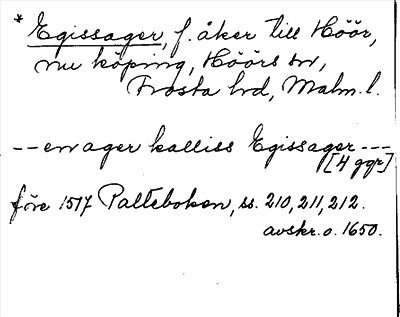 * Egissager, f. åker till Höör,
nu köping, Höörs sn,
Frosta hd, Malm. l.
-- en ager kalliss Egissager ---
[4 ggr]
före 1517 Palteboken, ss. 210, 211, 212.
avskr. o. 1650.